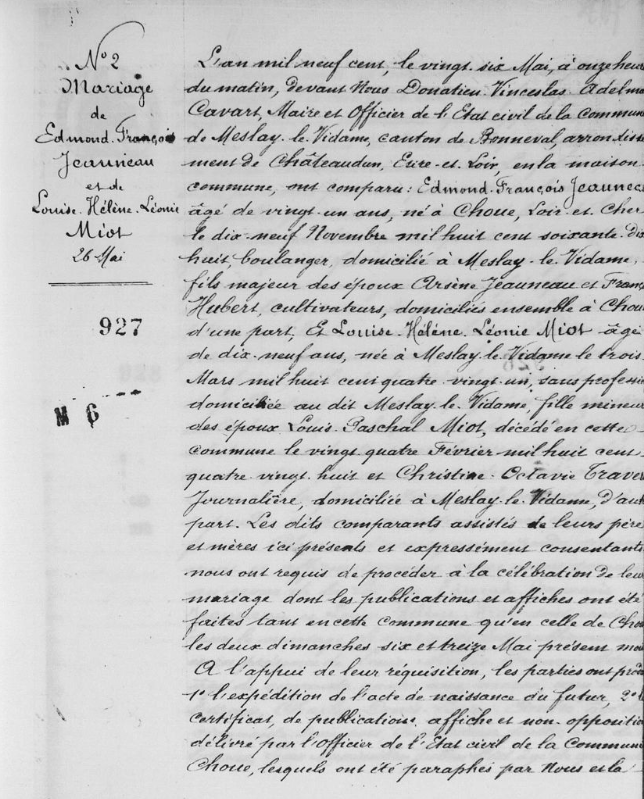 N° 2
Mariage
de
Edmond. François
Jeauneau
et de
Louise. Hélène. Léonie
Miot
26 Mai
927
M 6
L'an mil neuf cent, le vingt six Mai, à onze heur
du matin, devant Nous Donatien Vinceslas Adelm
Cavart, Maire et Officier de l'Etat civil de la Commun
de Meslay. le. Vidame, canton de Bonneval, arrondisse
ment de Châteaudun, Eure. et. Loir, en la maison
commune, ont comparu : Edmond. François Jeaunea
âgé de vingt. un ans, né à Choue, Loir. et. Cher
le dix. neuf Novembre mil huit cent soixante. dix
huit, boulanger, domicilié à Meslay. le. Vidame,
fils majeur des époux Arsène Jeauneau et Franç
Hubert, cultivateurs, domiciliés ensemble à Chou
d'une part, Et Louise. Hélène. Léonie Miot âgé
de dix. neuf ans, née à Meslay. le. Vidame le trois
Mars mil huit cent quatre vingt. un, sans professi
domiciliée au dit Meslay. le. Vidame, fille mineu
des époux Louis. Paschal Miot, décédé en cette
commune le vingt. quatre Février mil huit cent
quatre vingt huit et Christine Octavie Traver
Journalière, domiciliée à Meslay. le. Vidame, d'aut
part. Les dits comparants assistés de leurs père
et mères ici présents et expressément consentants
nous ont requis de procéder à la célébration de leu
mariage dont les publications et affiches ont été
faites tant en cette commune qu'en celle de Chou
les deux dimanches six et treize Mai présent moi
A l'appui de leur réquisition, les parties ont prod
1° l'expédition de l'acte de naissance du futur, 2° l
certificat, de publications, affiche et non-oppositio
délivré par l'Officier de l'Etat civil de la Commun
Choue, lesquels ont été paraphés par Nous et la